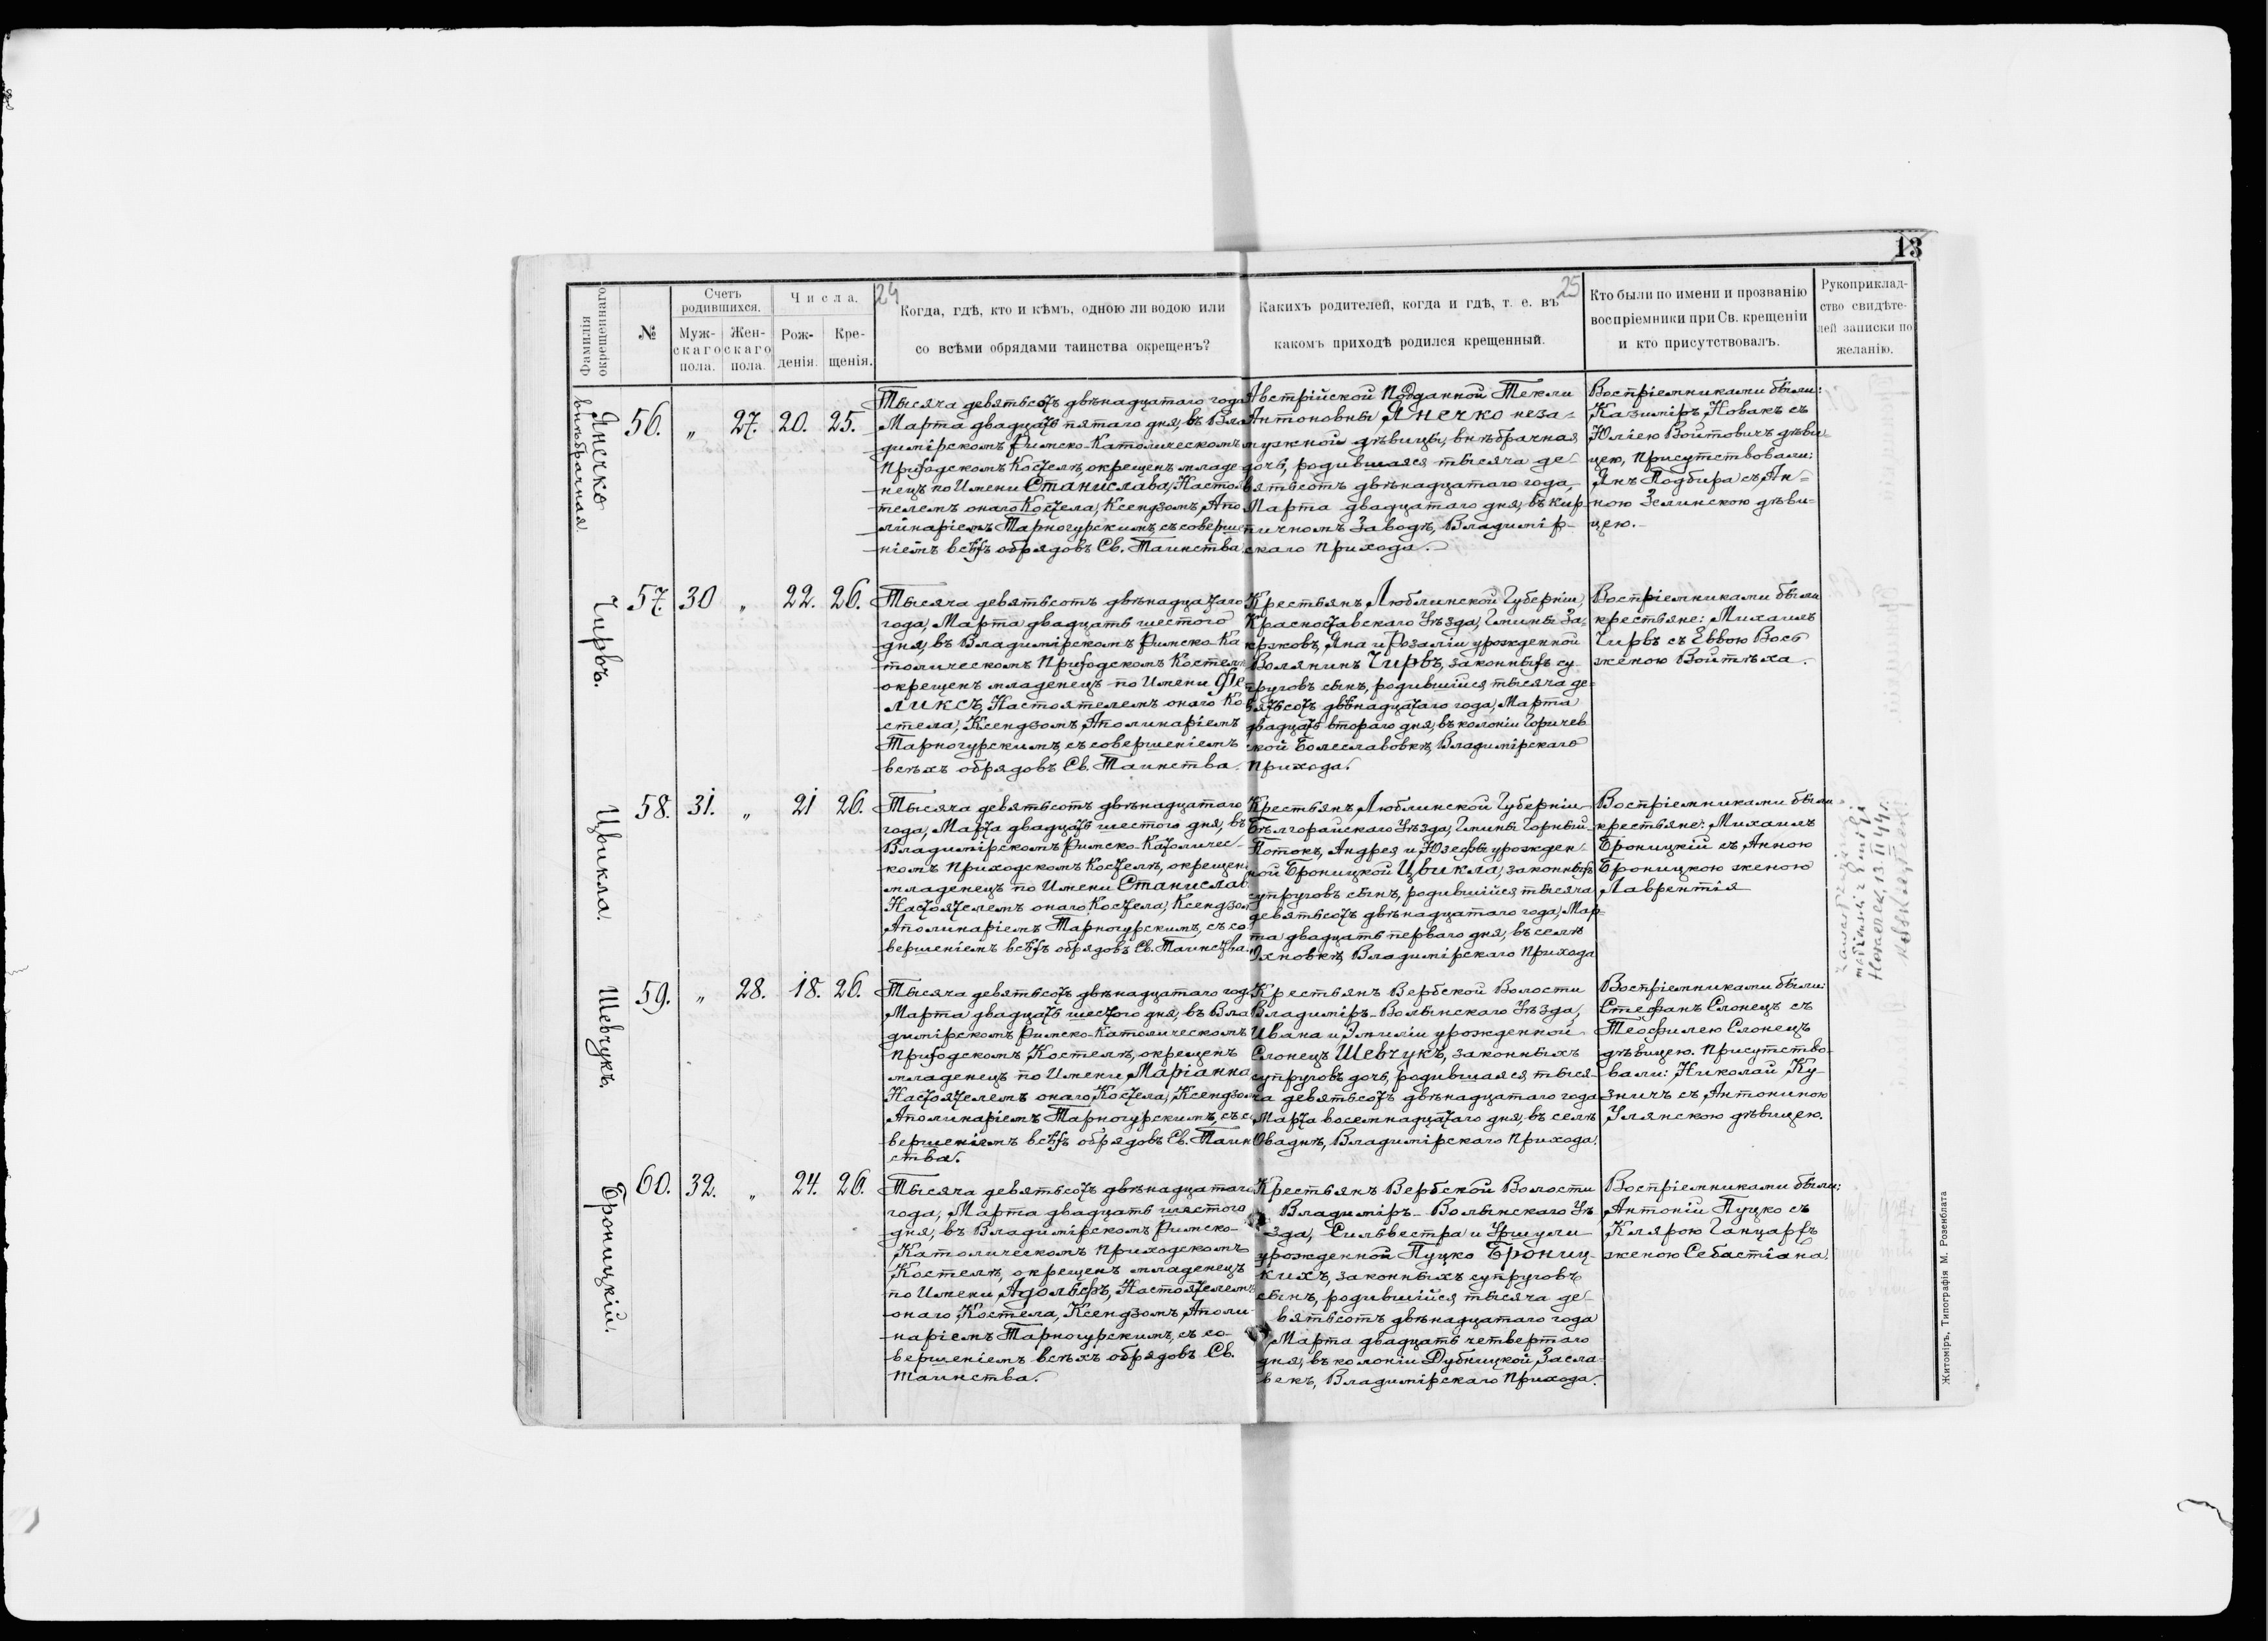 13
24
25
Фамилія окрещеннаго
№
Счетъ родившихся.
Муж-скаго пола.
Жен-скаго пола.
Числа.
Рож-денія.
Кре-щенія.
Когда, гдѣ, кто и кѣмъ, одною ли водою или
со всѣми обрядами таинства окрещенъ?
Какихъ родителей, когда и гдѣ, т. е. въ
какомъ приходѣ родился крещенный.
Кто были по имени и прозванію
воспріемники при Св. крещеніи
и кто присутствовалъ.
Рукоприклад-
ство свидѣте-
лей записки по
желанію.
Янечко
внѣбрачная.
56. „ 27. 20. 25.
Тысяча девятьсотъ двѣнадцатаго года
Марта двадцать пятаго дня, въ Вла
димірскомъ Римско-Католическомъ
Приходскомъ Костелѣ, окрещенъ младе
нецъ по Имени Станислава, Настоя
телемъ онаго Костела, Ксендзомъ, Апо
линаріемъ Тарногурскимъ, съ соверше
ніемъ всѣхъ обрядовъ Св. Таинства.
Австрійской Подданной Текли
Антоновны Янечко неза-
мужной дѣвицы, внѣбрачная
дочь, родившаяся тысяча де-
вятьсотъ двѣнадцатаго года,
Марта двадцатаго дня, въ Кир-
пичномъ Заводѣ, Владимір-
скаго Прихода.
Воспріемниками были:
Казиміръ Новакъ съ
Юліею Войтовичъ дѣви-
цею, Присутствовали:
Янъ Подбира съ Ан=
ною Зелинскою дѣви-
цею.-
Чирвъ.
57. 30 „ 22. 26.
Тысяча девятьсотъ двѣнадцатаго
года, Марта двадцать шестого
дня, въ Владимірскомъ Римско-Ка
толическомъ Приходскомъ Костелѣ
окрещенъ младенецъ по Имени Фе
ликсъ, Настоятелемъ онаго Ко
стела, Ксендзомъ, Аполинаріемъ
Тарногурскимъ, съ совершеніемъ
всѣхъ обрядовъ Св. Таинства.
Крестьянъ, Люблинской Губерніи,
Красноставскаго Уѣзда, Гмины За-
кржовъ, Яна и Розаліи урожденной
Волянинъ Чирвъ, законныхъ су
пруговъ сынъ, родившійся тысяча де=
вятьсотъ двѣнадцатаго года, Марта
двадцать втораго дня, въ колоніи Горичев
ской Болеславовкѣ, Владимірскаго
Прихода.
Воспріемниками были
крестьяне: Михаилъ
Чирвъ съ Еввою Вось
женою Войтѣха.
Цвикла.
58. 31. „ 21 26.
Тысяча девятьсотъ двѣнадцатаго
года, Марта двадцать шестого дня, въ
Владимірскомъ Римско-Католичес-
комъ Приходскомъ Костелѣ, окрещен
младенецъ по Имени Станислав
Настоятелемъ онаго Костела, Ксендзом
Аполинаріемъ Тарногурскимъ, съ со
вершеніемъ всѣхъ обрядовъ Св. Таинства.
Крестьянъ, Люблинской Губерніи
Бѣлгорайскаго Уѣзда, Гмины Горный-
Потокъ, Андрея и Юзефы урожден-
ной Броницкой Цвикла, законныхъ
супруговъ сынъ, родившійся тысяча
девятьсотъ двѣнадцатаго года, Мар-
та двадцать перваго дня, въ селѣ
Охновкѣ, Владимірскаго Прихода
Воспріемниками были
крестьяне: Михаилъ
Броницкій съ Анною
Броницкою женою
Лаврентія
13. II 44 r.
Шевчукъ.
59. „ 28. 18. 26.
Тысяча девятьсотъ двѣнадцатаго год
Марта двадцать шестого дня, въ Вла
димірскомъ Римско-Католическомъ
Приходскомъ Костелѣ, окрещенъ
младенецъ по Имени Маріанна
Настоятелемъ онаго Костела, Ксендзом
Аполинаріемъ Тарногурскимъ, съ со
вершеніемъ всѣхъ обрядовъ Св. Таин
ства.
Крестьянъ Вербской Волости
Владиміръ-Волынскаго Уѣзда,
Ивана и Эмиліи урожденной
Слонецъ Шевчукъ, законныхъ
супруговъ дочь, родившаяся, тыся-
ча девятьсотъ двѣнадцатаго года
Марта восемнадцатаго дня, въ селѣ
Оваднѣ, Владимірскаго Прихода.
Воспріемниками были:
Стефанъ Слонецъ съ
Теофилею Слонецъ
дѣвицею. Присутство-
вали: Николай Ку-
зничъ съ Антониною
Улянскою дѣвицею.
Броницкій.
60. 32. „ 24. 26.
Тысяча девятьсотъ двѣнадцатаго
года, Марта двадцать шестого
дня, въ Владимірскомъ Римско-
Католическомъ Приходскомъ
Костелѣ, окрещенъ младенецъ
по Имени Адольфъ, Настоятелемъ
онаго Костела, Ксендзомъ, Аполи-
наріемъ Тарногурскимъ, съ со-
вершеніемъ всѣхъ обрядовъ Св.
Таинства.
Крестьянъ Вербской Волости
Владиміръ-Волынскаго Уѣ
зда, Сильвестра и Уршули
урожденной Пуцко Брониц-
кихъ, законныхъ супруговъ
сынъ, родившійся тысяча де-
вятьсотъ двѣнадцатаго года
Марта двадцать четвертаго
дня, въ колоніи Дубницкой, Засла-
векъ, Владимірскаго Прихода.
Воспріемниками были:
Антоній Пуцко съ
Клярою Ганцаржъ
женою Себастіана.
Житоміръ, Типографія М. Розенблата